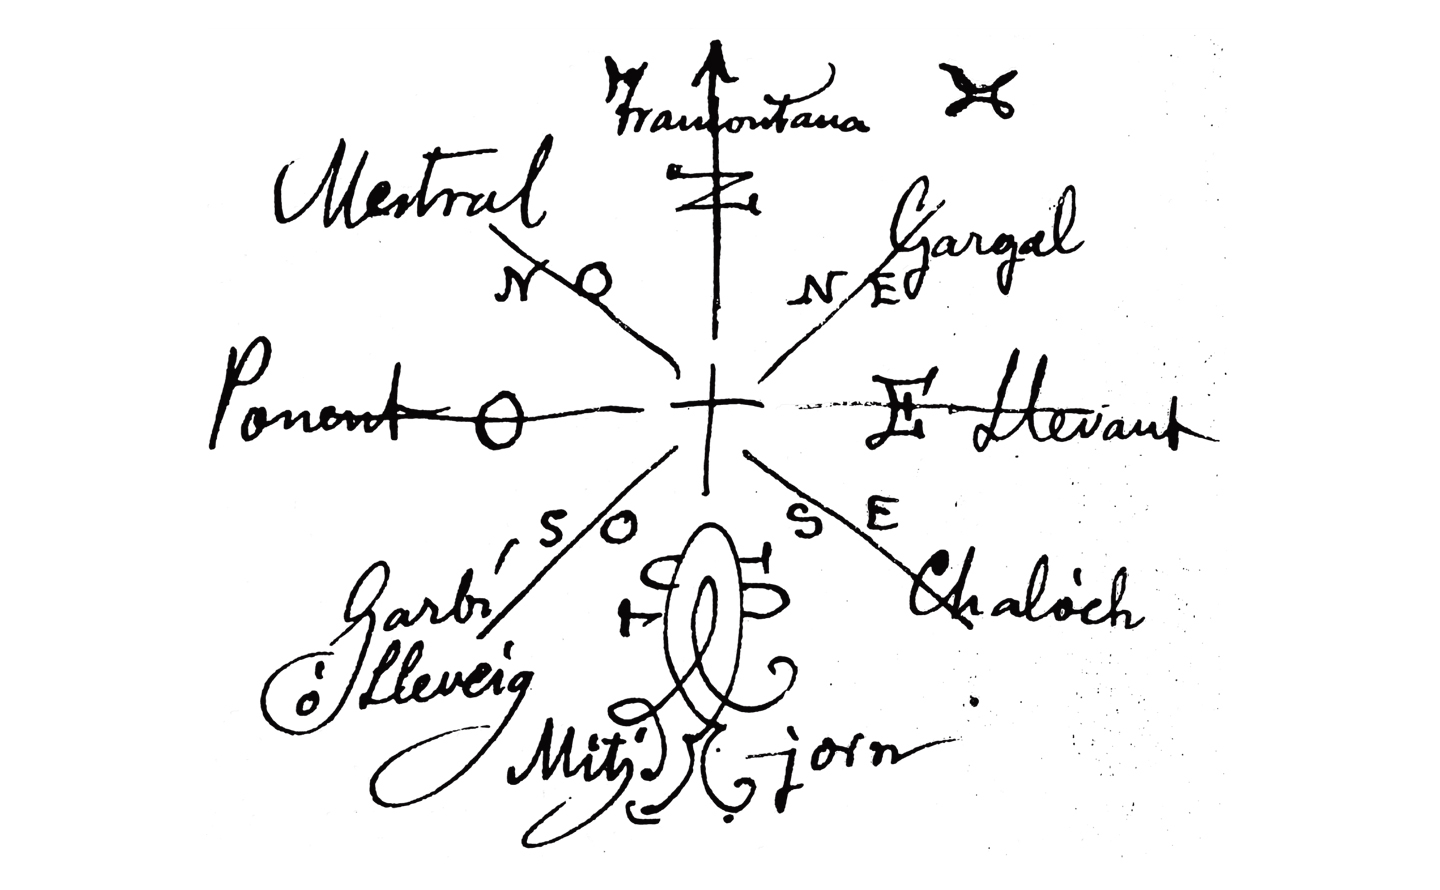 Tramontana
N
Mestral
Gargal
N O
N E
Ponent O
E Llevant
S O
S E
Garbí
ó Lleveig
Chalòch
S
Mitj jorn